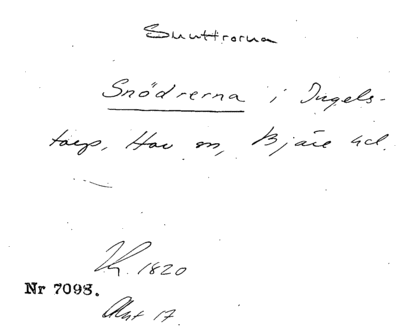 Snuttrorna
Snödrerna i Ingels-
torp, Hov sn, Bjäre hd.
Lh. 1820
Nr 7098.
Akt 17.